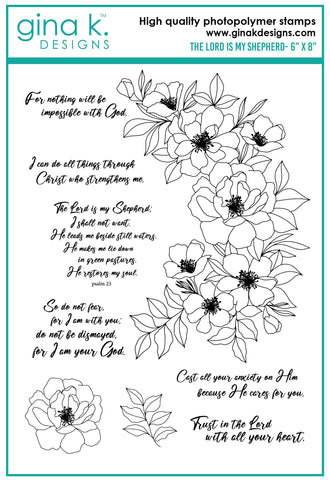 gina k.
DESIGNS
High quality photopolymer stamps
www.ginakdesigns.com
THE LORD IS MY SHEPHERD- 6" X 8"
For nothing will be
impossible with God.
I can do all things through
Christ who strengthens me.
The Lord is my Shepherd;
I shall not want.
He leads me beside still waters.
He makes me lie down
in green pastures.
He restores my soul.
psalm 23
So do not fear,
for I am with you;
do not be dismayed,
for I am your God.
Cast all your anxiety on Him
because He cares for you.
Trust in the Lord
with all your heart.